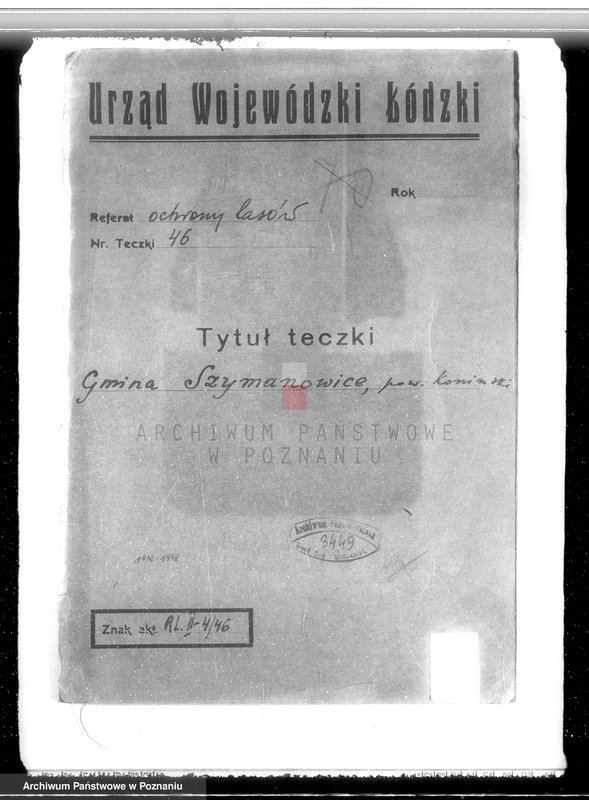 Urząd Wojewódzki Łódzki
Rok
Referat ochrony lasów
Nr. Teczki 46
Tytuł teczki
Gmina Szymanowice, pow. koniński
ARCHIWUM PAŃSTWOWE
W POZNANIU
Archiwum
3449
Znak akt. RL. II-4/46
Archiwum Państwowe w Poznaniu